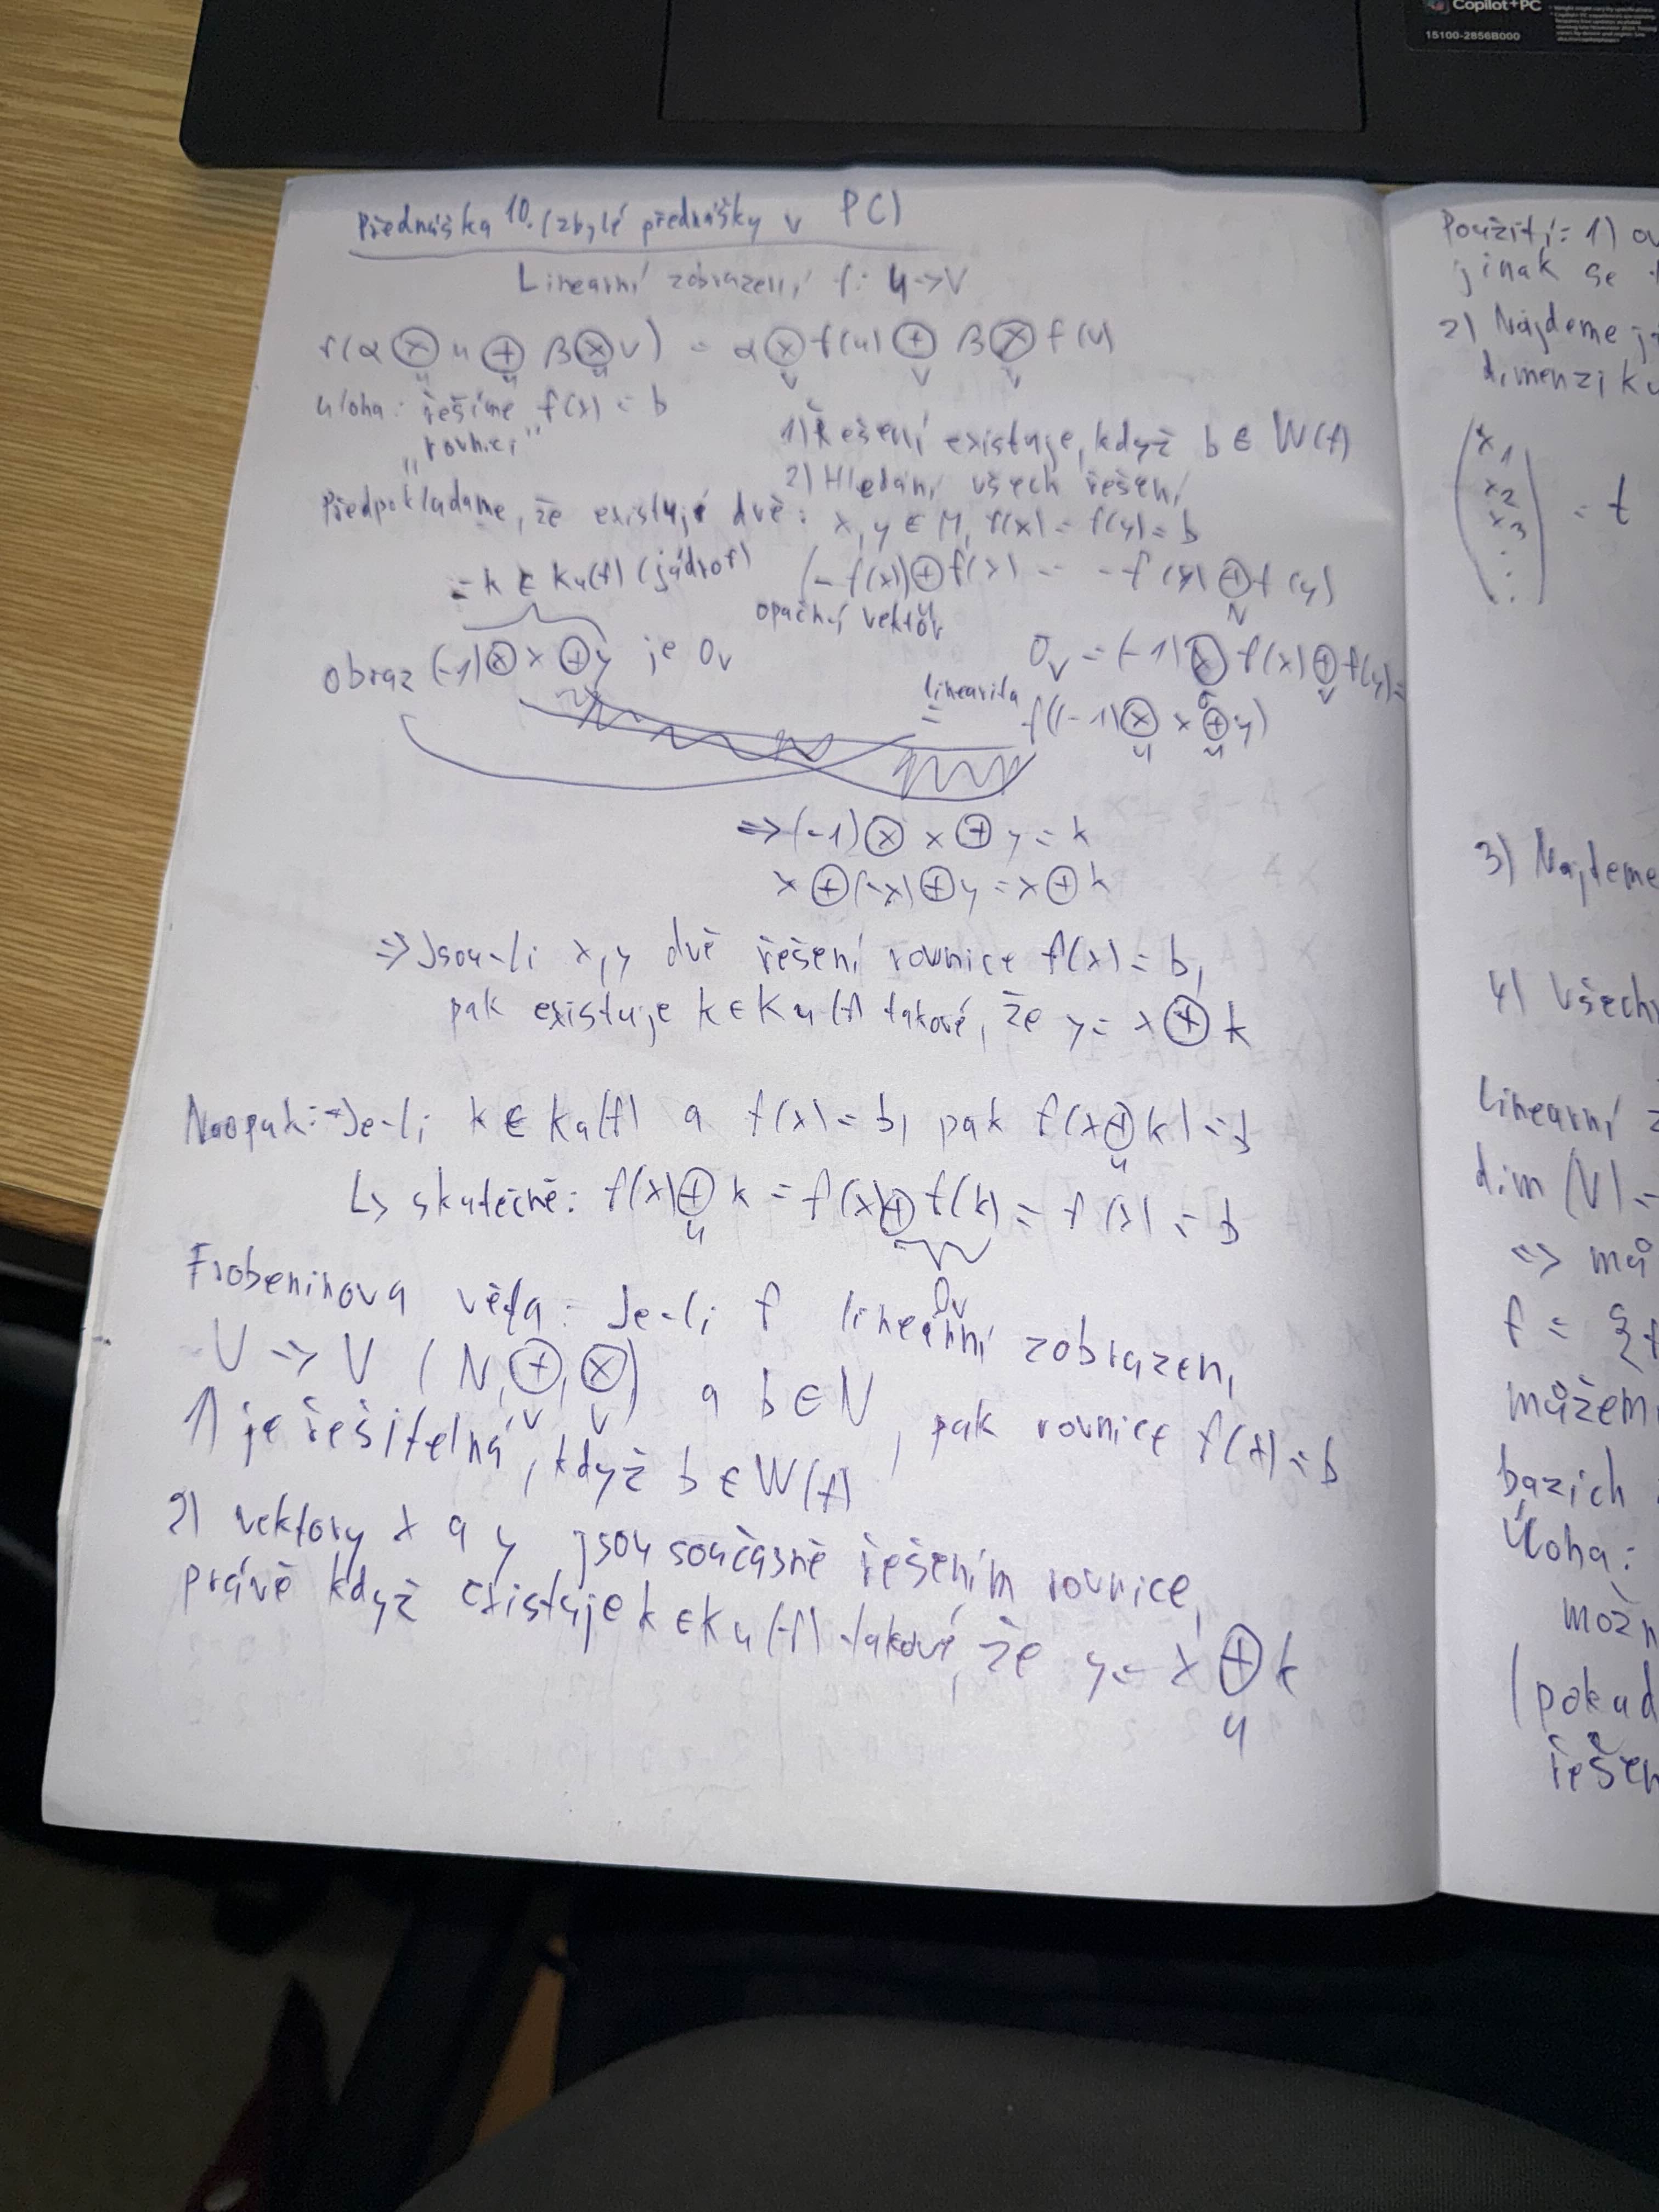 Copilot+PC
15100-2856B000
Přednáška 10. (zbylé přednášky v PC)
Linearní zobrazení f: U->V
f(α ⊗ u ⊕ β ⊗ v) = α ⊗ f(u) ⊕ β ⊗ f(v)
u u u v v v
úloha: řešíme f(x) = b
„rovnici"
1) Řešení existuje, když b ∈ W(f)
2) Hledání všech řešení
Předpokladame, že existují dvě: x, y ∈ M, f(x) = f(y) = b
= k ∈ Ku(f) (jádro f)
(-f(x)) ⊕ f(x) = -f(x) ⊕ f(y)
opačný vektor
Obraz (-1) ⊗ x ⊕ y je 0v
0v = (-1) ⊗ f(x) ⊕ f(y) =
linearita
= f((-1) ⊗ x ⊕ y)
u u
=> (-1) ⊗ x ⊕ y = k
x ⊕ (-x) ⊕ y = x ⊕ k
=> Jsou-li x, y dvě řešení rovnice f(x) = b,
pak existuje k ∈ Ku(f) takové, že y = x ⊕ k
Naopak: Je-li k ∈ Ku(f) a f(x) = b, pak f(x ⊕ k) = b
u
↳ skutečně: f(x) ⊕ k = f(x) ⊕ f(k) = f(x) = b
u
0v
Frobeniova věta: Je-li f lineární zobrazení
U -> V (N, ⊕, ⊗) a b ∈ N, pak rovnice f(x) = b
v v
1) je řešitelná, když b ∈ W(f)
2) vektory x a y jsou současně řešením rovnice,
právě když existuje k ∈ Ku(f) takové, že y = x ⊕ k
u
Použití: 1)
jinak se
2) Najdeme
dimenzi
x1
x2
x3
= t
3) Najdeme
4)
Linearní
dim (V) =
=>
f = {
bazich
Úloha:
(pokud